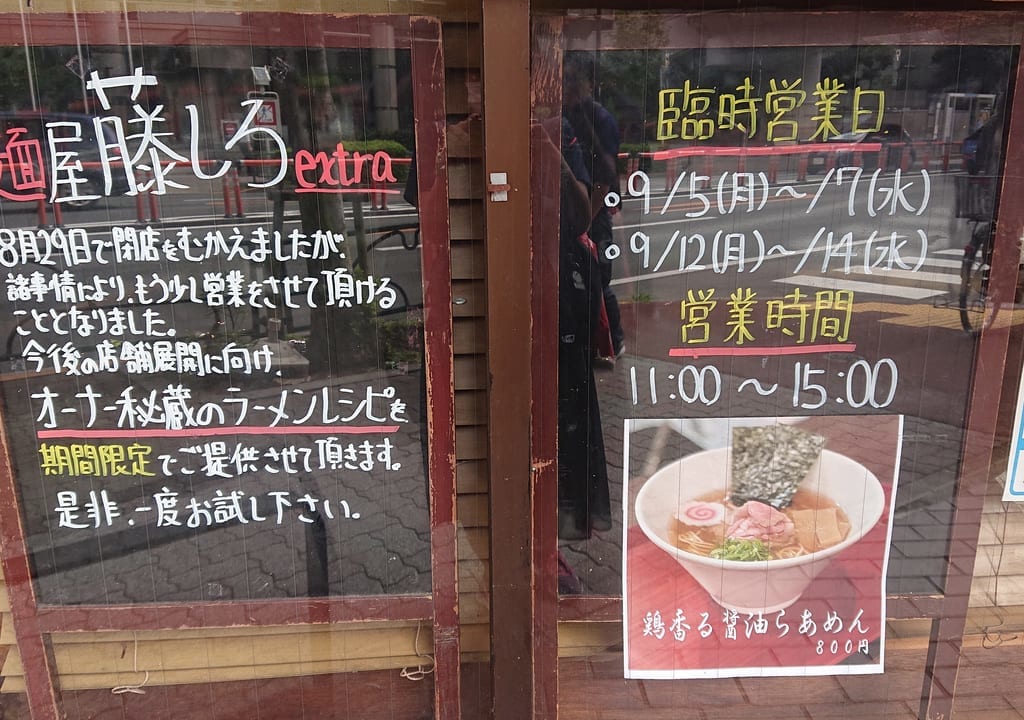 麺屋 藤しろ extra
8月29日で閉店をむかえましたが、
諸事情により、もう少し営業をさせて頂ける
こととなりました。
今後の店舗展開に向け、
オーナー秘蔵のラーメンレシピを
期間限定でご提供させて頂きます。
是非、一度お試し下さい。
臨時営業日
○9/5(月)~/7(水)
○9/12(月)~/14(水)
営業時間
11:00~15:00
鶏香る醤油らあめん
800円